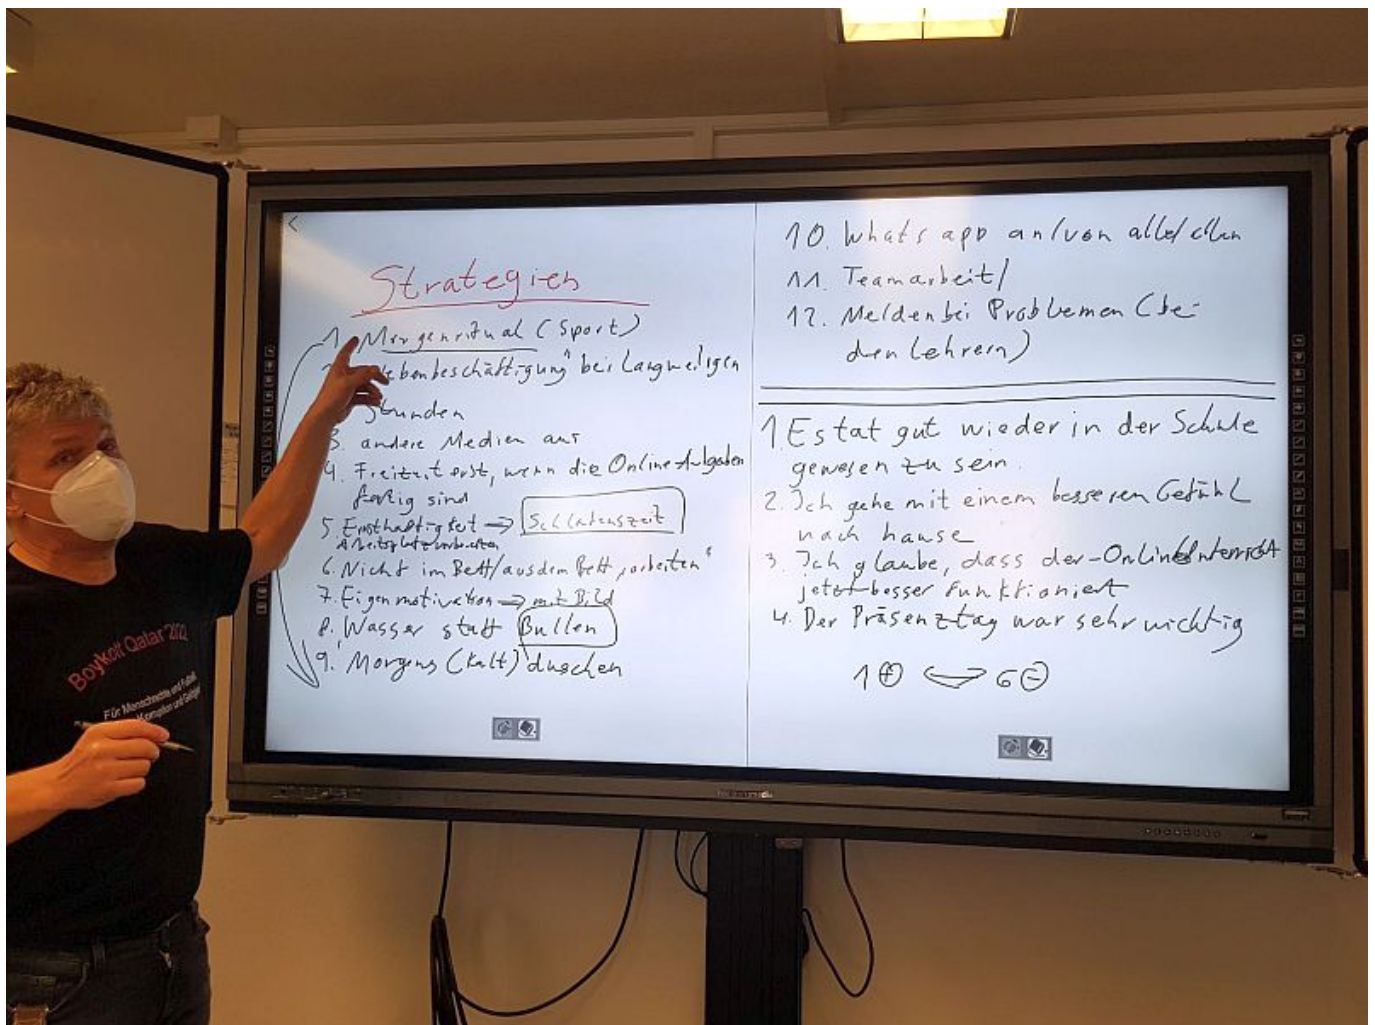 Strategien
1. Morgenritual (Sport)
ebenbeschäftigung" bei Langweiligen
Stunden
3. andere Medien aus
4. Freizeit erst, wenn die Online-Aufgaben
fertig sind
5. Ernsthaftigkeit → Schlafenszeit
Arbeitsplatz vorbereiten
6. Nicht im Bett/aus dem Bett „arbeiten"
7. Eigenmotivation → mit Bild
8. Wasser statt Bullen
9. Morgens (kalt) duschen
10. Whats app an/von alle/allen
11. Teamarbeit/
12. Melden bei Problemen (bei
den Lehrern)
1 Es tat gut wieder in der Schule
gewesen zu sein.
2. Ich gehe mit einem besseren Gefühl
nach hause
3. Ich glaube, dass der Online Unterricht
jetzt besser funktioniert
4. Der Präsenztag war sehr wichtig
1 + 6 -
Boykott Qatar 2022
Für Menschenrechte und Fußball
Korruption und Geldgier